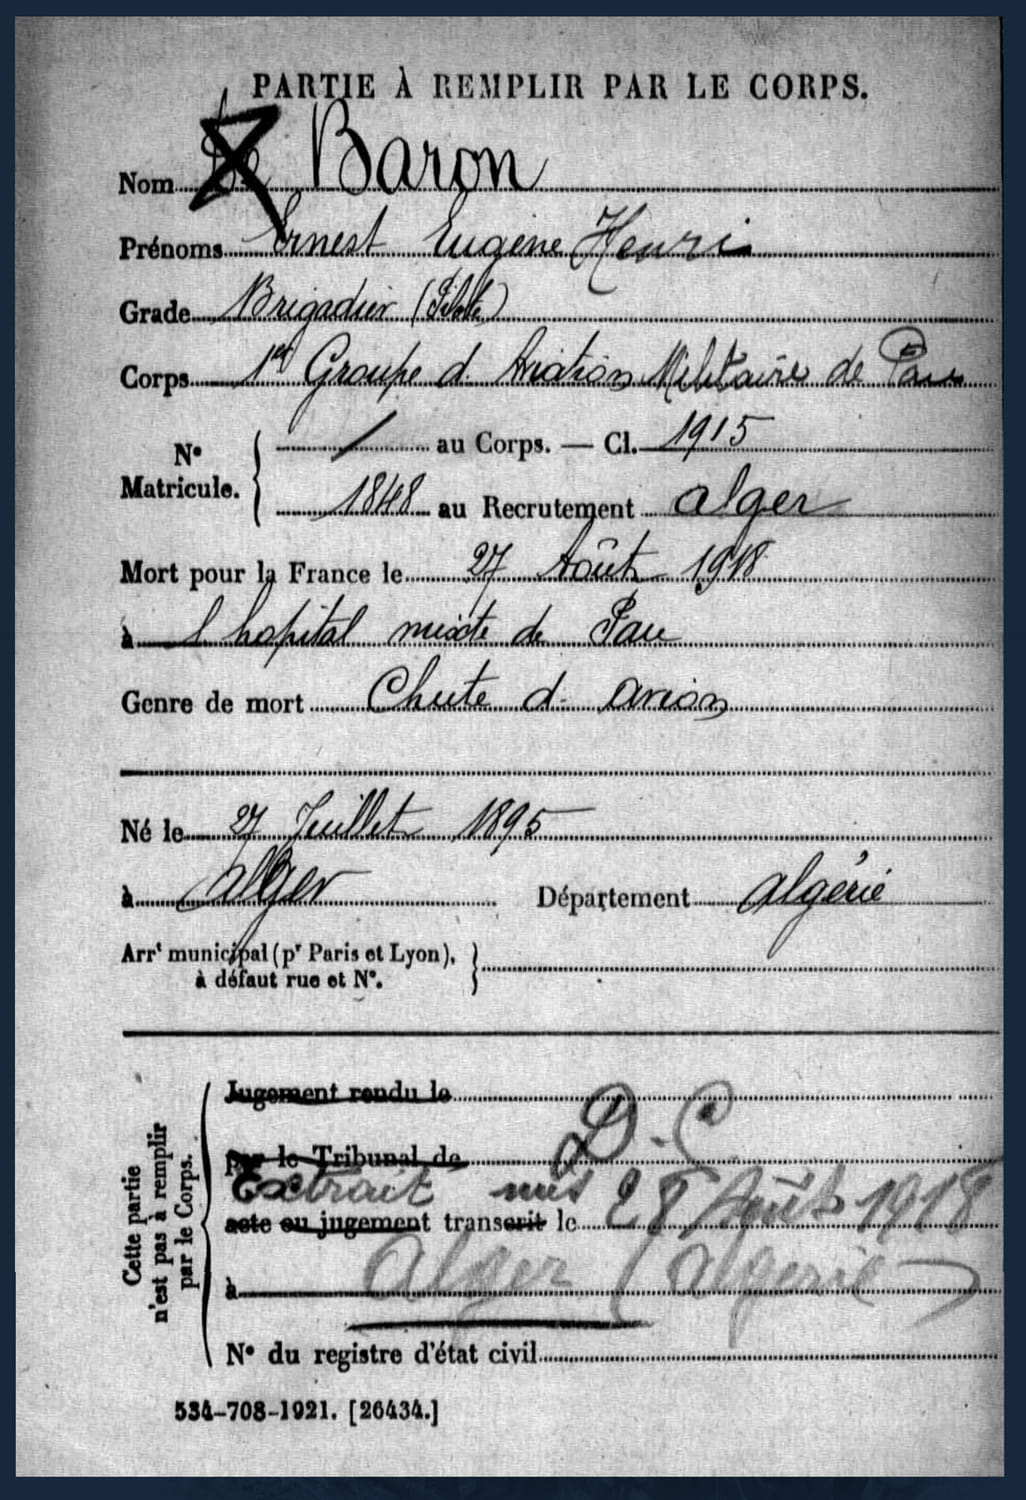 PARTIE À REMPLIR PAR LE CORPS.
Nom Baron
Prénoms Ernest Eugène Henri
Grade Brigadier (Pilote)
Corps 1er Groupe d. Aviation Militaire de Pau
N° Matricule. / au Corps. — Cl. 1915
1848 au Recrutement alger
Mort pour la France le 27 Août 1918
à l hopital mixte de Pau
Genre de mort Chute d. avion
Né le 27 Juillet 1895
à alger Département algérie
Arrt municipal (pr Paris et Lyon), à défaut rue et N°.
Cette partie n'est pas à remplir par le Corps.
Jugement rendu le
par le Tribunal de D.C
Extrait 28 Août 1918
acte ou jugement transcrit le
à Alger (algerie)
N° du registre d'état civil
534-708-1921. [26434.]